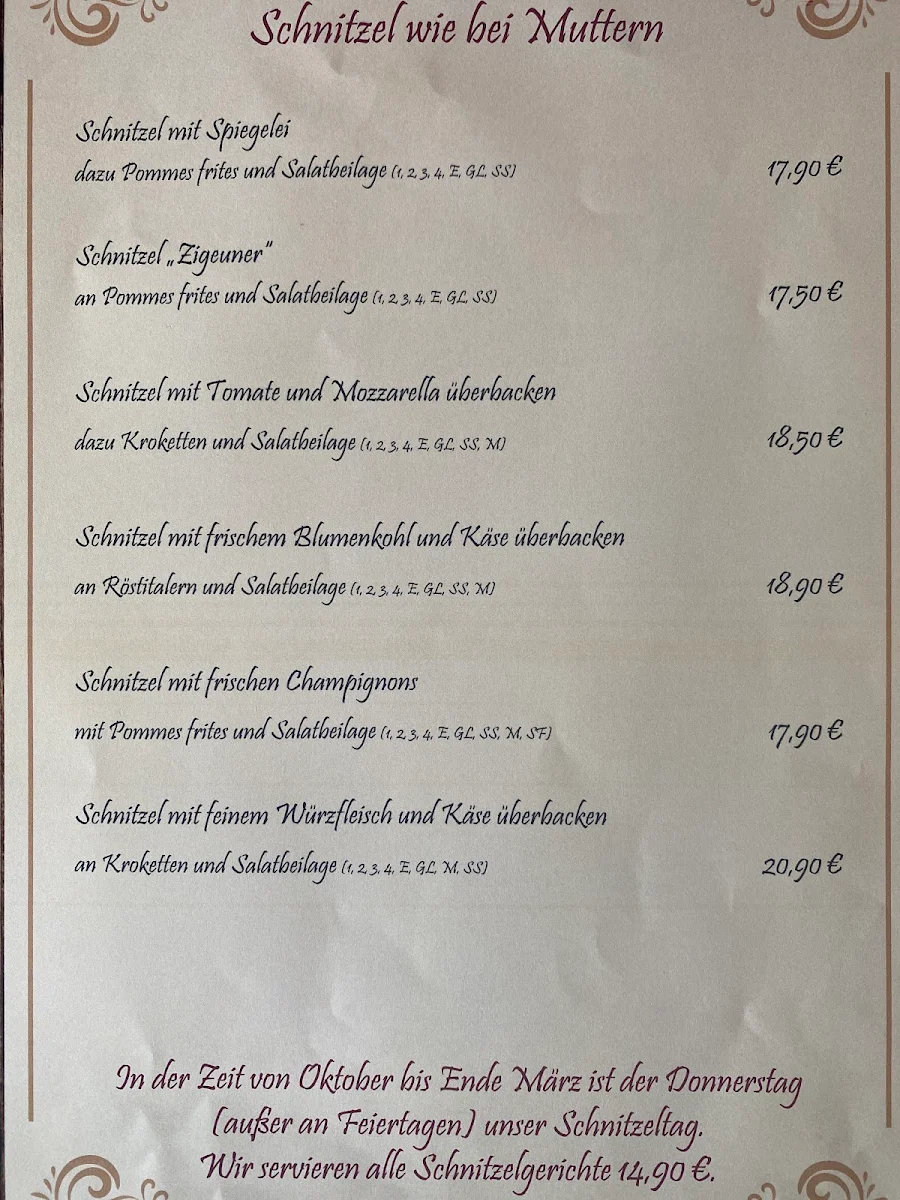 Schnitzel wie bei Muttern
Schnitzel mit Spiegelei
dazu Pommes frites und Salatbeilage (1, 2, 3, 4, E, GL, SS) 17,90 €
Schnitzel „Zigeuner“
an Pommes frites und Salatbeilage (1, 2, 3, 4, E, GL, SS) 17,50 €
Schnitzel mit Tomate und Mozzarella überbacken
dazu Kroketten und Salatbeilage (1, 2, 3, 4, E, GL, SS, M) 18,50 €
Schnitzel mit frischem Blumenkohl und Käse überbacken
an Röstitalern und Salatbeilage (1, 2, 3, 4, E, GL, SS, M) 18,90 €
Schnitzel mit frischen Champignons
mit Pommes frites und Salatbeilage (1, 2, 3, 4, E, GL, SS, M, SF) 17,90 €
Schnitzel mit feinem Würzfleisch und Käse überbacken
an Kroketten und Salatbeilage (1, 2, 3, 4, E, GL, M, SS) 20,90 €
In der Zeit von Oktober bis Ende März ist der Donnerstag
(außer an Feiertagen) unser Schnitzeltag.
Wir servieren alle Schnitzelgerichte 14,90 €.